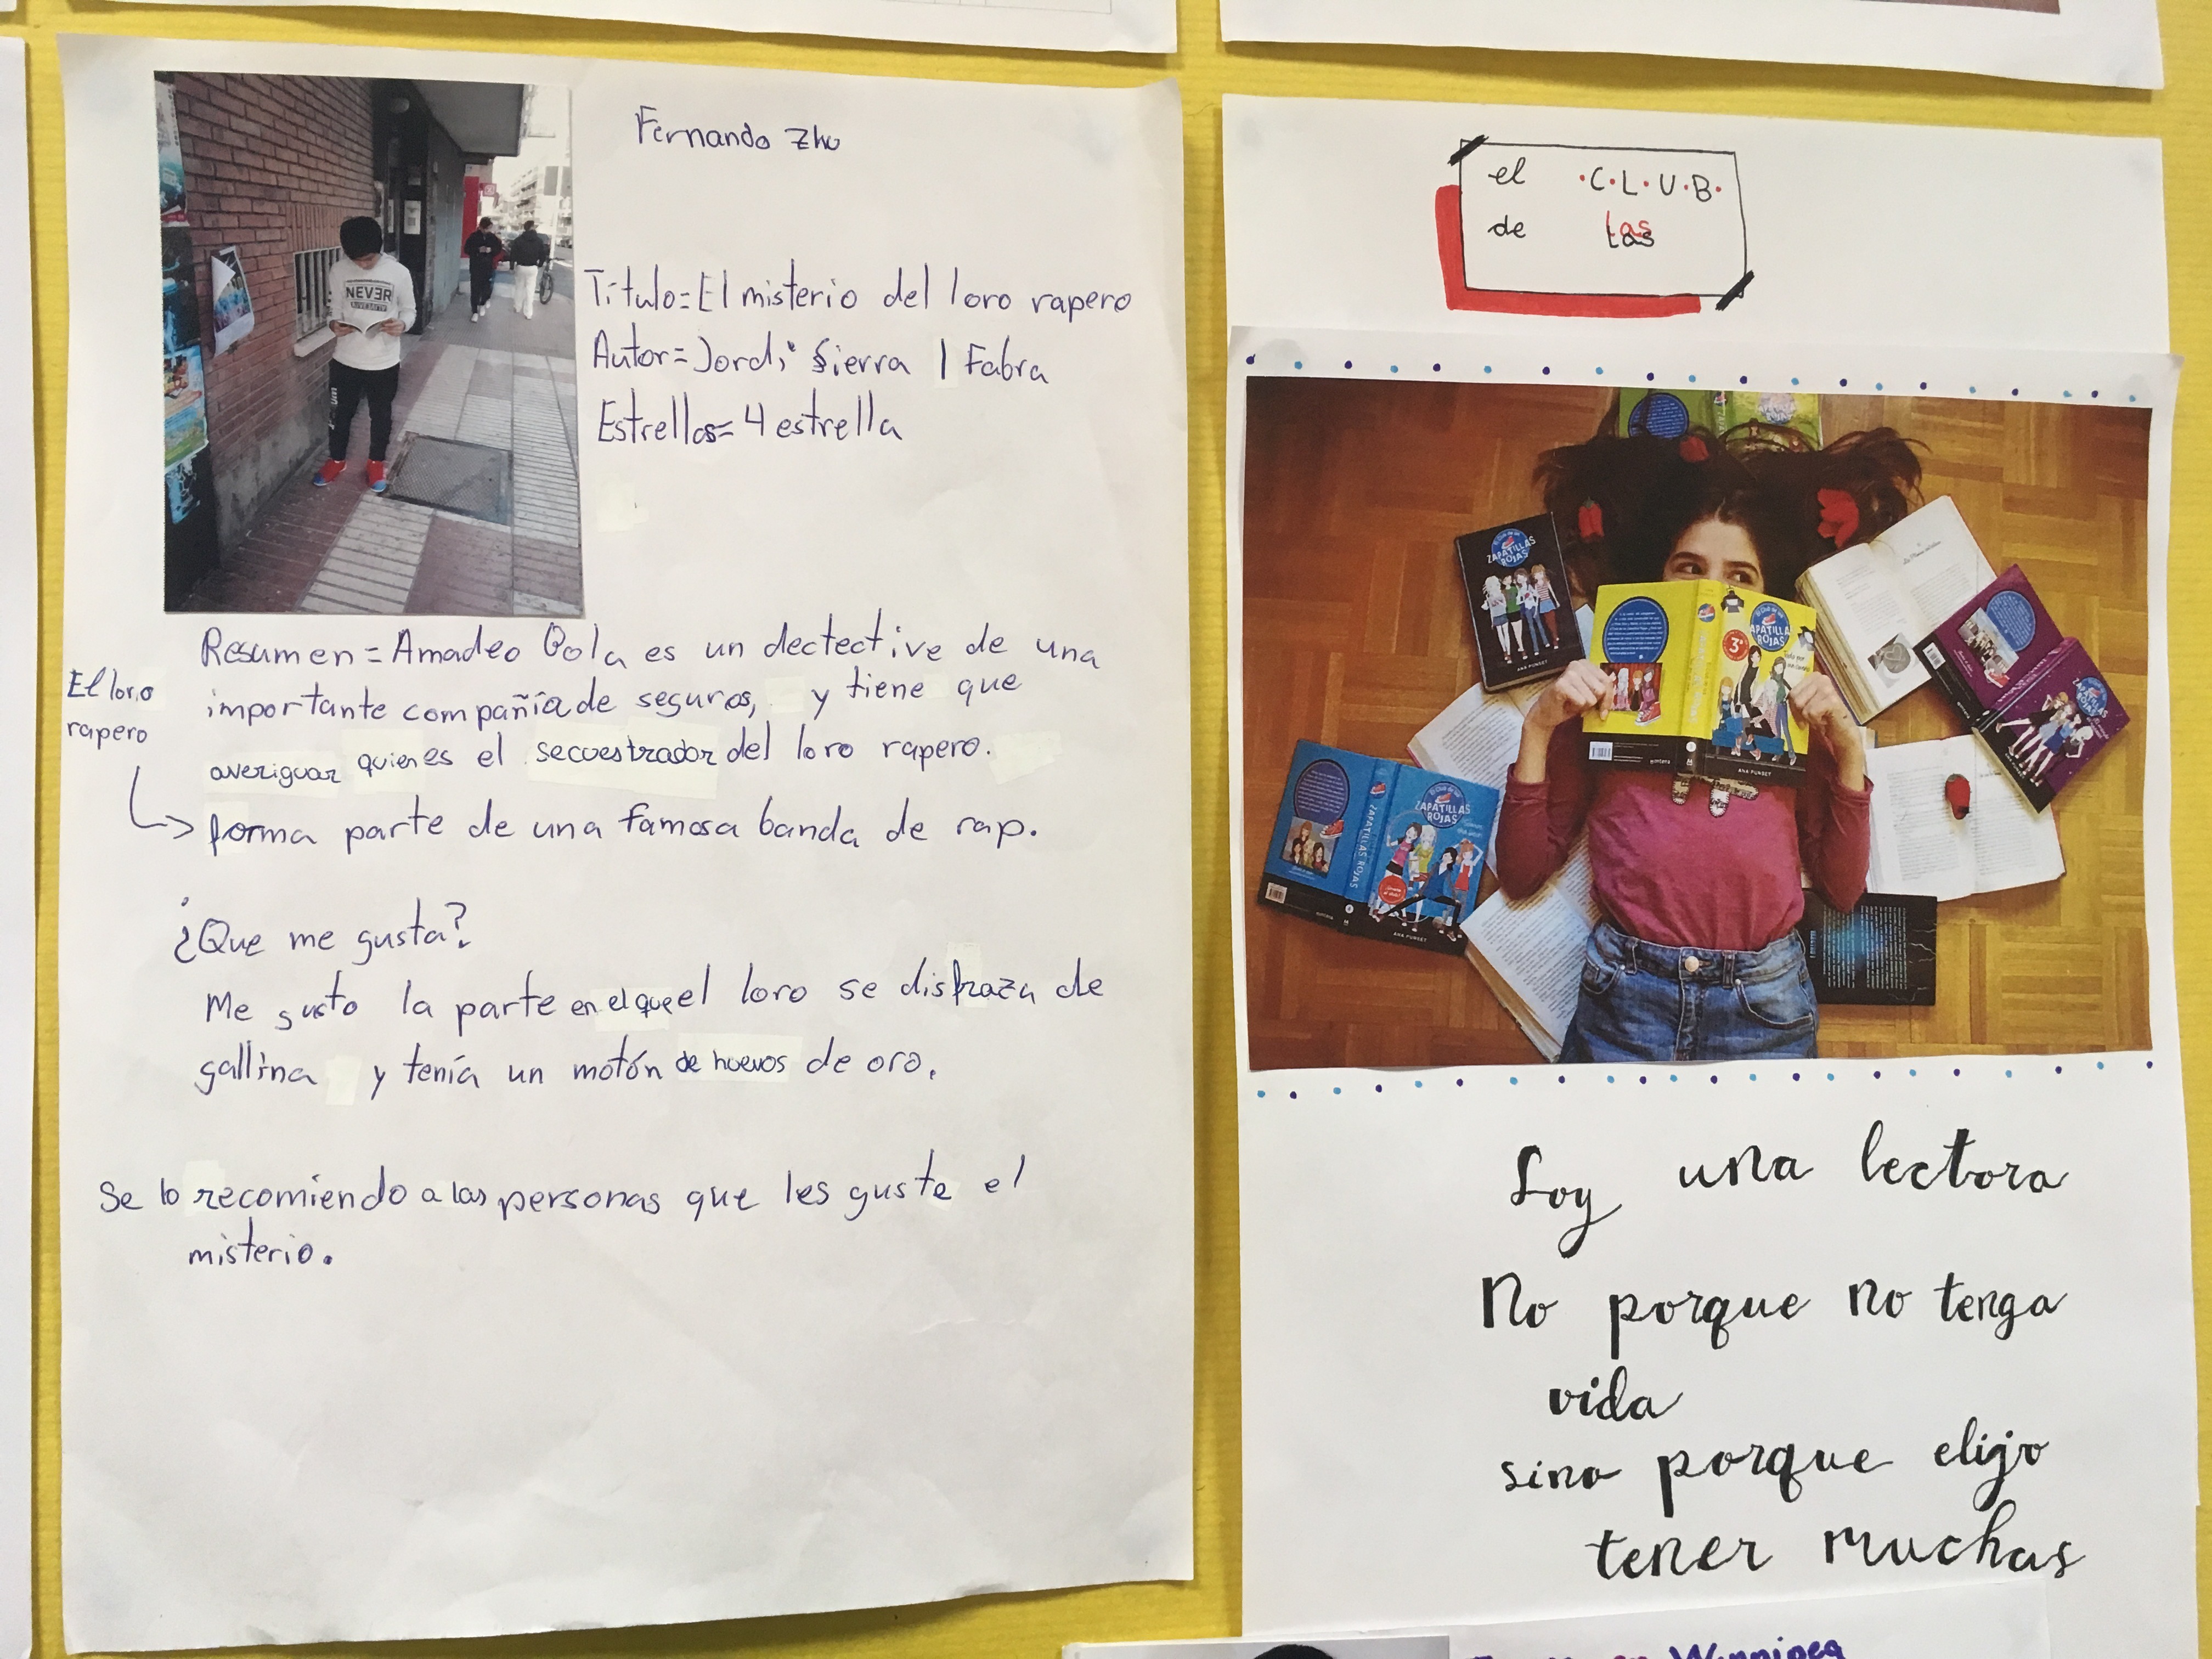 Fernando Zhu
Título=El misterio del loro rapero
Autor=Jordi Sierra I Fabra
Estrellas=4 estrella
NEVER
Resumen=Amadeo Bola es un dectective de una
importante compañía de seguros, y tiene que
averiguar quien es el secuestrador del loro rapero.
El loro
rapero
forma parte de una famosa banda de rap.
¿Que me gusta?
Me gusto la parte en el que el loro se disfraza de
gallina y tenía un motón de huevos de oro.
Se lo recomiendo a las personas que les guste el
misterio.
el ·C·L·U·B·
de las
El Club de las
ZAPATILLAS
ROJAS
ANA PUNSET
El Club de las
ZAPATILLAS
ROJAS
3ª
ANA PUNSET
montena
El Club de las
ZAPATILLAS
ROJAS
ZAPATILLAS ROJAS
ANA PUNSET
ZAPATILLAS
ROJAS
Soy una lectora
No porque no tenga
vida
sino porque elijo
tener muchas
Winnipeg